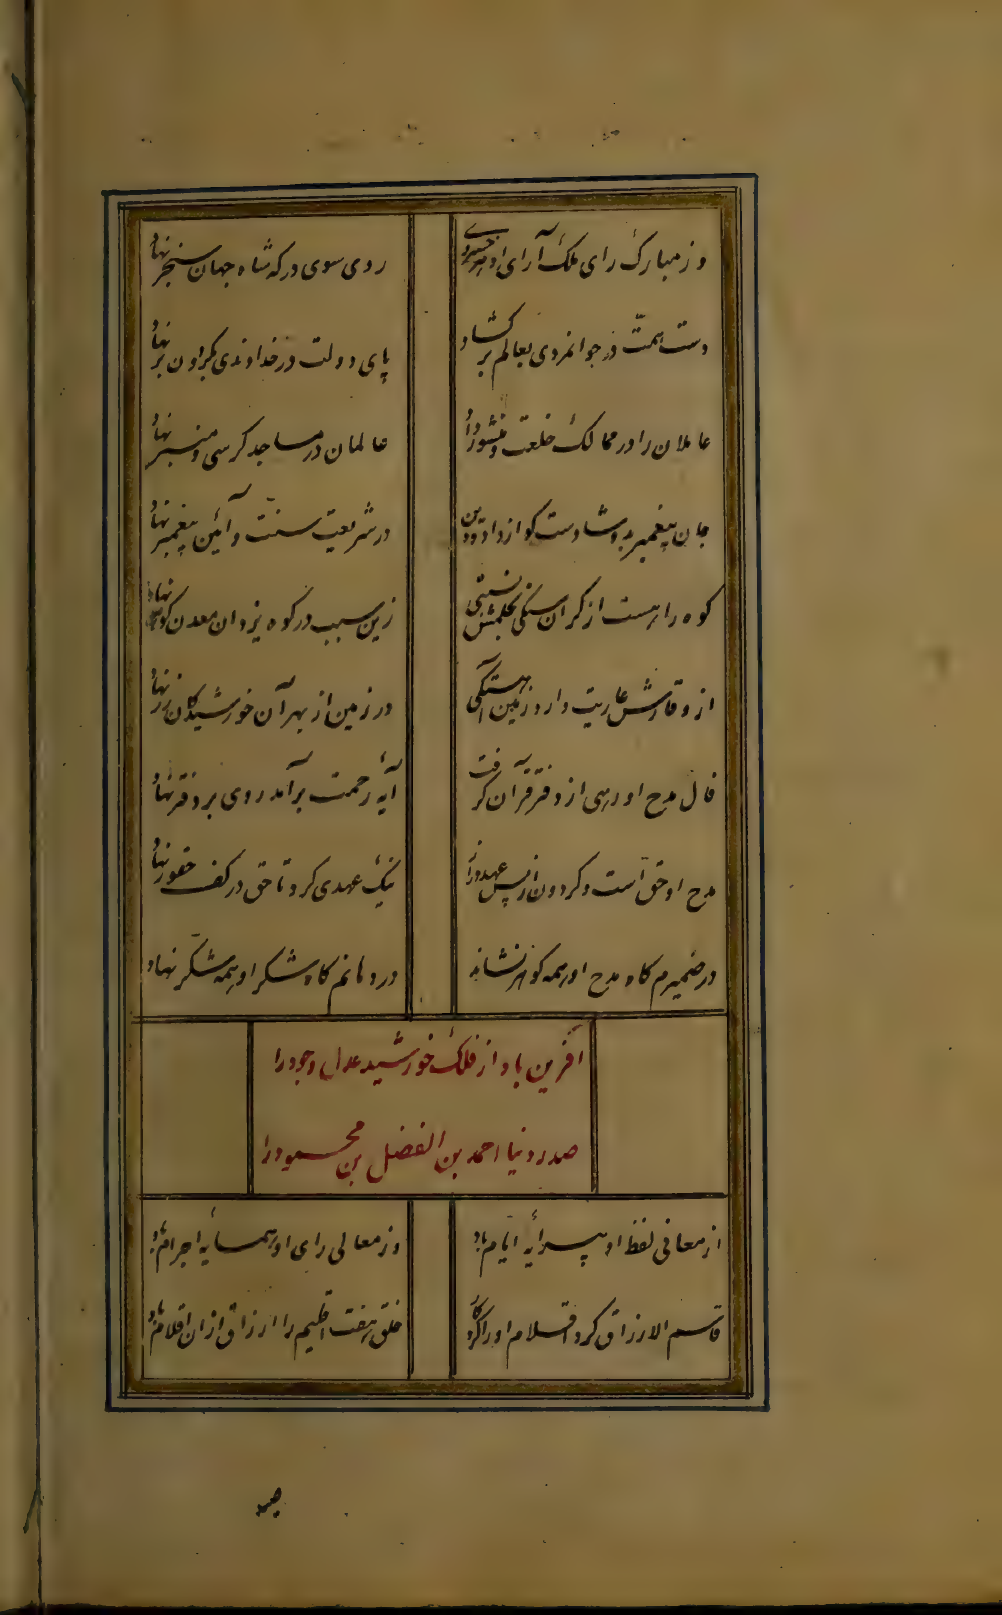 وز مبارک رای ملک آرای او هر خسروی
روی سوی درکه شاه جهان سنجر نهاد
دست همت در جوانمردی بعالم بر کشاد
پای دولت در خداوندی بکردون بر نهاد
عاملان را در ممالک خلعت و منشور داد
عالمان در مساجد کرسی و منبر نهاد
جان پیغمبر بدو شادست کو از داد و دین
در شریعت سنت و آئین پیغمبر نهاد
کوه را هست از کران سنکی بحلمش نسبتی
زین سبب در کوه یزدان معدن کوهر نهاد
از وقارش عاریت دارد زمین آهستکی
در زمین از بهر آن خورشید کان زر نهاد
فال مدح او رهی از دفتر قرآن کرفت
آیه رحمت برآمد روی بر دفتر نهاد
مدح او حق است و کردون از پس عهد دراز
نیک عهدی کرد تا حق در کف حقور نهاد
در ضمیرم کاه مدح او همه کوهر نشاند
در دهانم کاه شکر او همه شکر نهاد
آفرین باد از فلک خورشید عدل وجود را
صدر دنیا احمد بن الفضل بن محمود را
از معانی لفظ او پیرایه ایام باد
وز معالی رای او همسایه اجرام باد
قاسم الارزاق کرد اقلام او را کردکار
خلق هفت اقلیم را ارزاق از ان اقلام باد